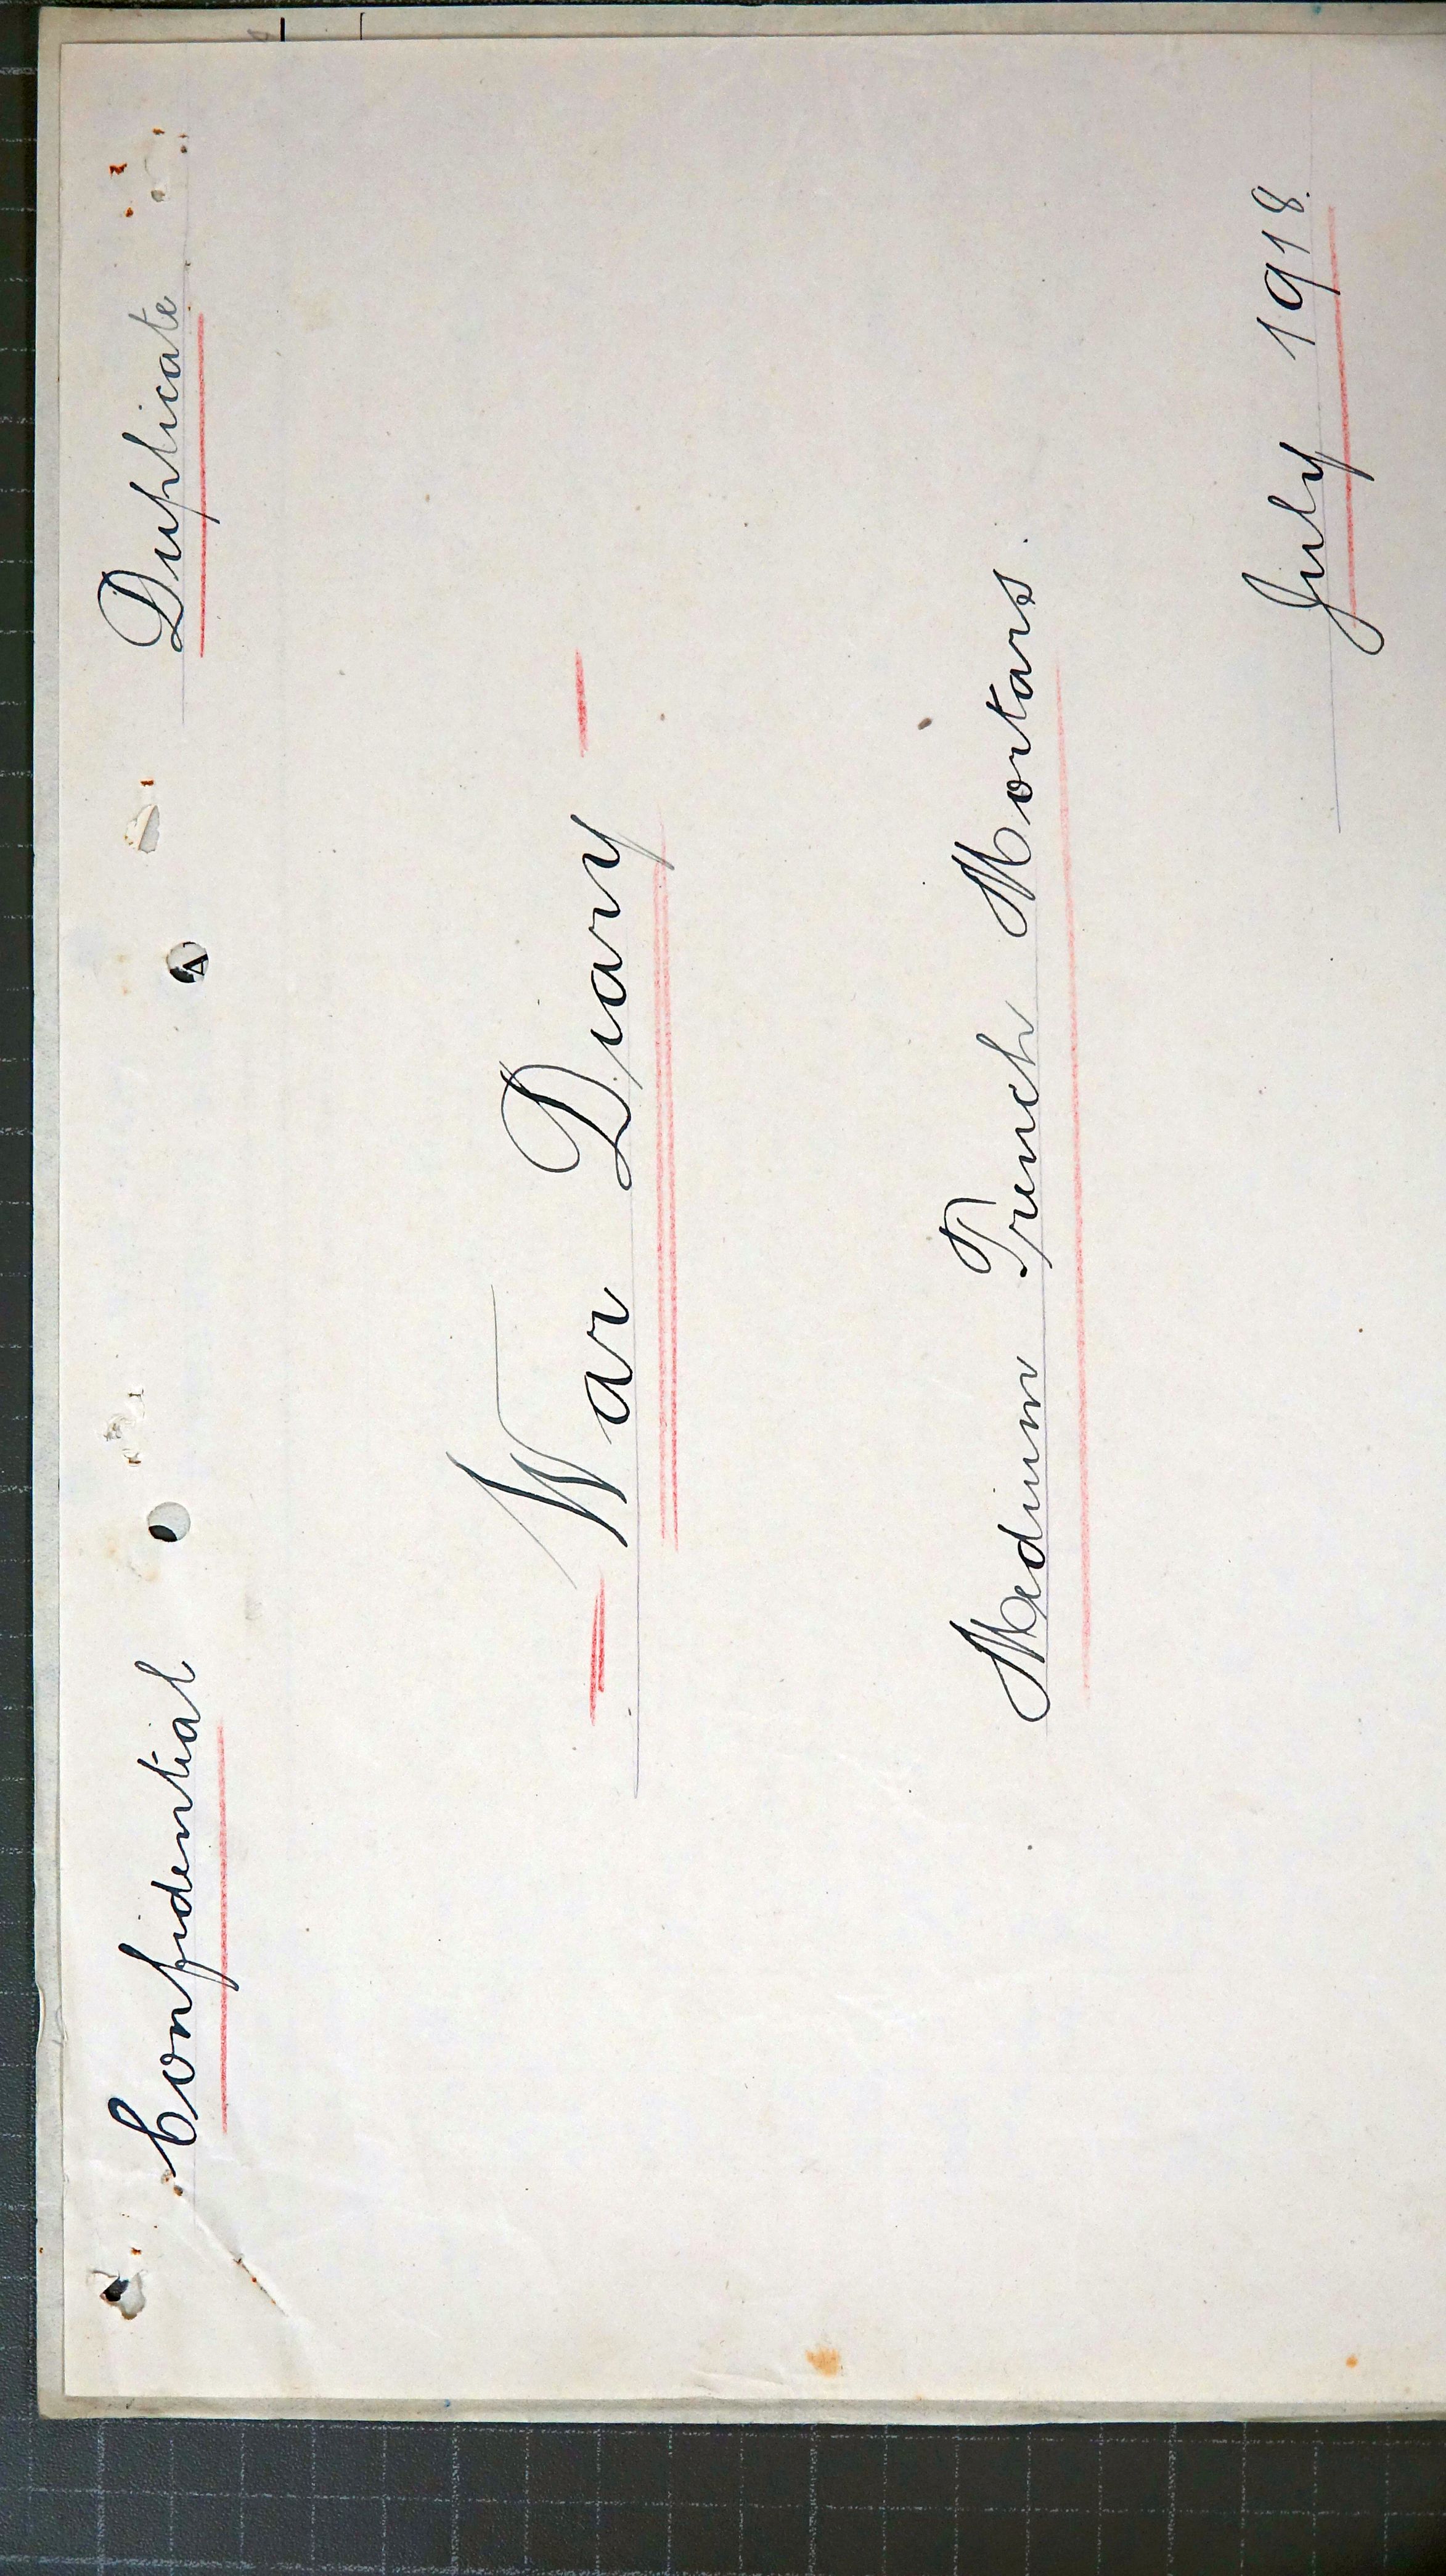 Confidential Duplicate
War Diary
Medium Trench Mortars.
July 1918.